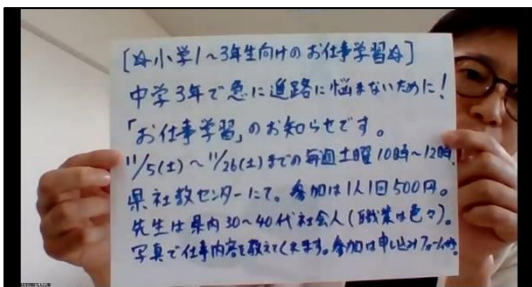 [☆小学1〜3年生向けのお仕事学習☆]
中学3年で急に進路に悩まないために!
「お仕事学習」のお知らせです。
11/5(土)〜11/26(土)までの毎週土曜10時〜12時
県社教センターにて。参加は1人1回500円。
先生は県内30〜40代社会人(職業は色々)。
写真で仕事内容を教えてくれます。参加は申し込みフォーム